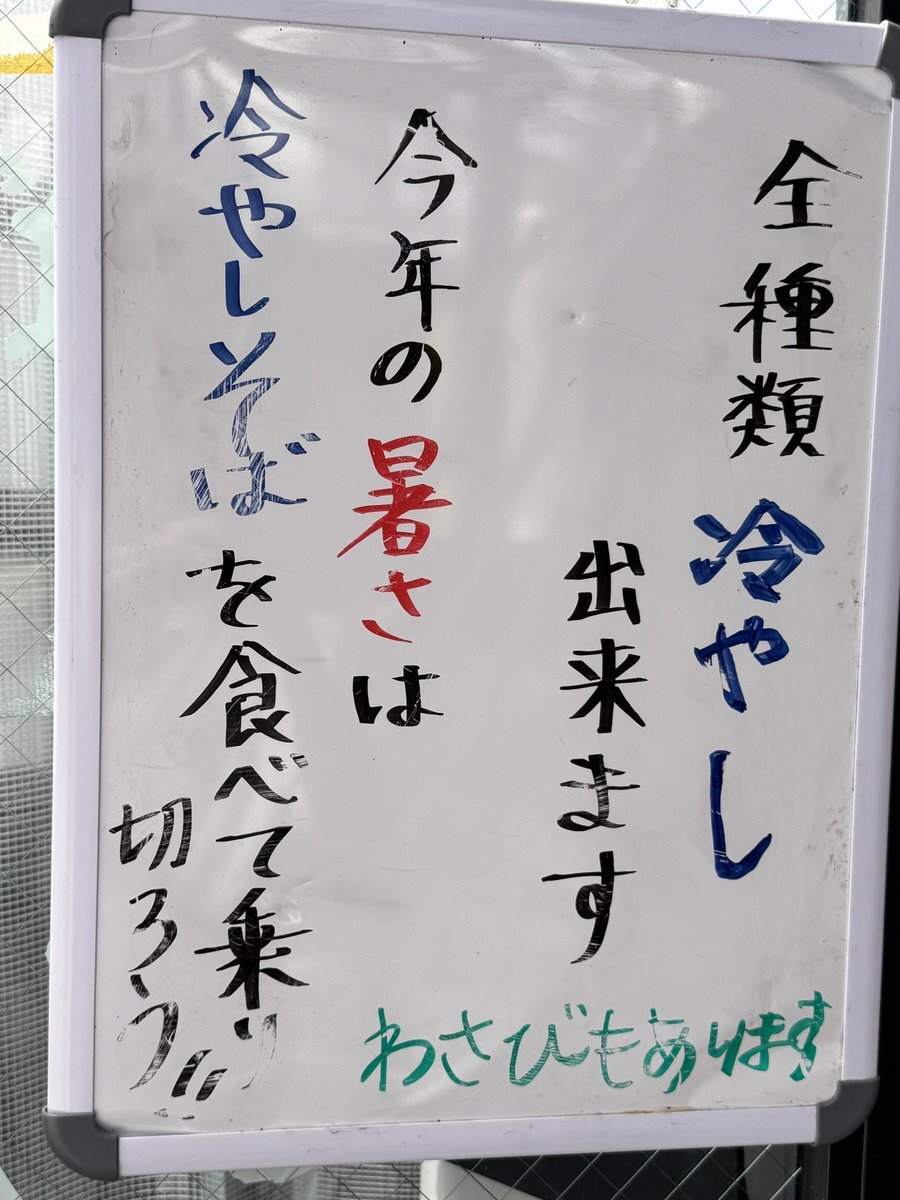 全種類冷やし
出来ます
今年の暑さは
冷やしそばを食べて乗り
切ろう!!
わさびもあります